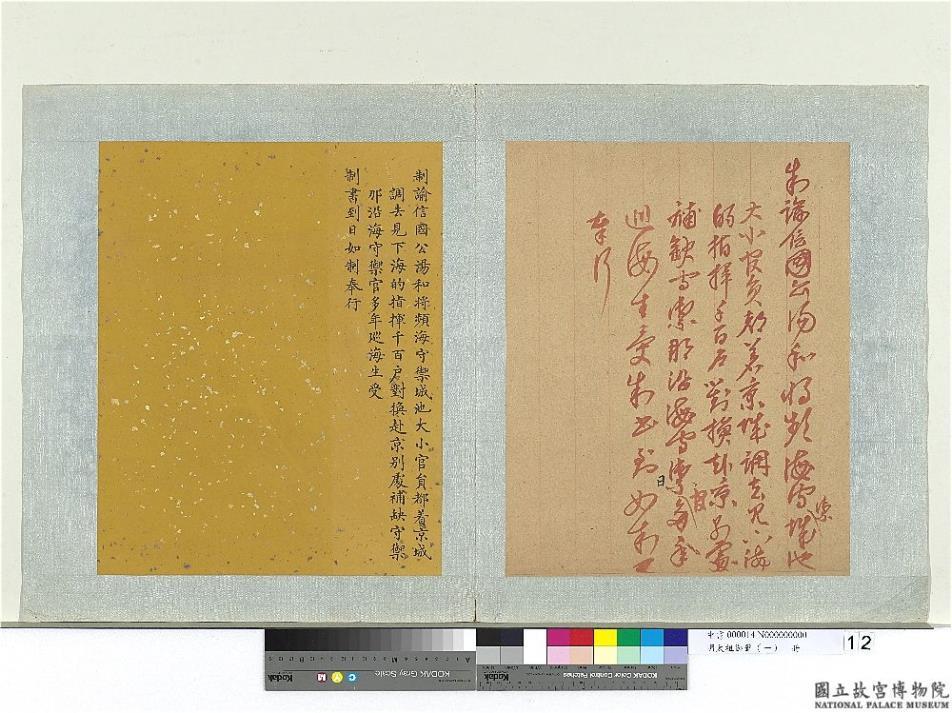 制諭信國公湯和將瀕海守禦城池
大小官員都着京城調去見下海
的指揮千百戶對換赴京別處
補缺守禦那沿海守禦官多年
巡海生受制書到日如制
奉行
制諭信國公湯和將頻海守禦城池大小官員都着京城
調去見下海的指揮千百戶對換赴京別處補缺守禦
那沿海守禦官多年巡海生受
制書到日如制奉行
KODAK Gray Scale
Kodak
M
C
Y
A
M
Kodak
KODAK Color Control Patches
000014 N000000000
明太祖御筆(一) 冊
12
國立故宮博物院
NATIONAL PALACE MUSEUM